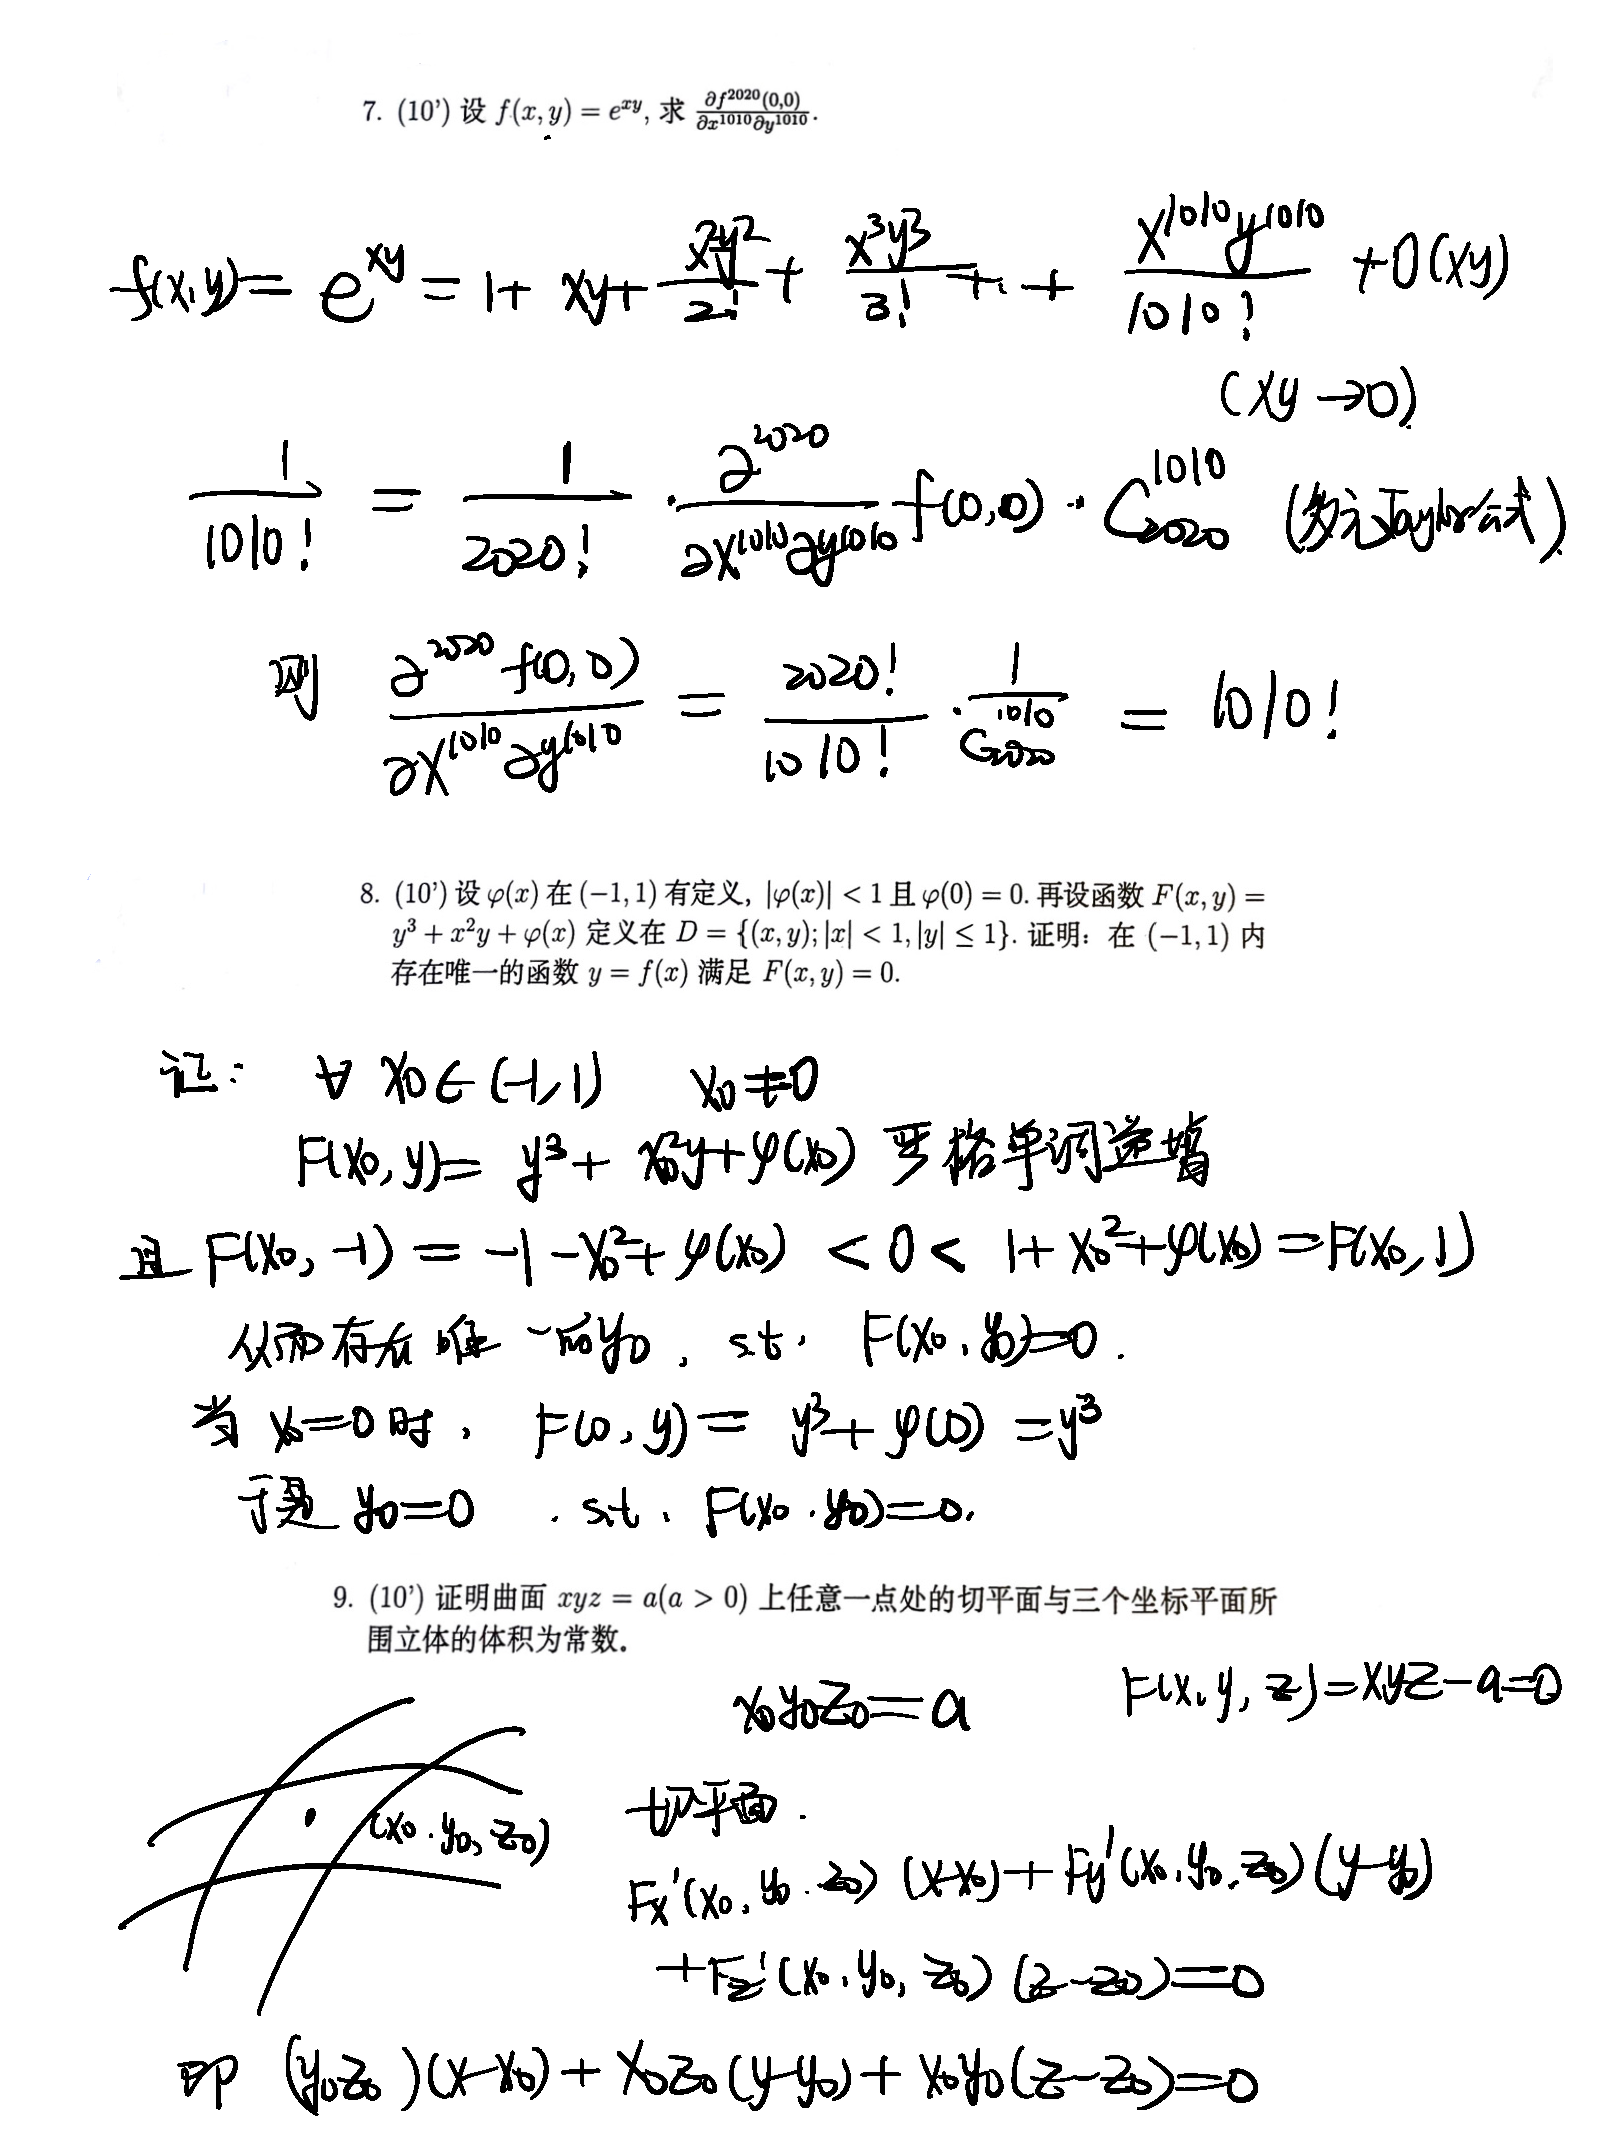 7. (10’) 设 f(x, y) = e^{xy}, 求 \frac{∂f^{2020}(0,0)}{∂x^{1010}∂y^{1010}}.
f(x,y) = e^{xy} = 1 + xy + \frac{x^2y^2}{2!} + \frac{x^3y^3}{3!} + ·· + \frac{x^{1010}y^{1010}}{1010!} + O(xy)
(xy → 0)
\frac{1}{1010!} = \frac{1}{2020!} · \frac{∂^{2020}}{∂x^{1010}∂y^{1010}} f(0,0) · C_{2020}^{1010} (多元Taylor公式)
则 \frac{∂^{2020} f(0,0)}{∂x^{1010}∂y^{1010}} = \frac{2020!}{1010!} · \frac{1}{C_{2020}^{1010}} = 1010!
8. (10’) 设 φ(x) 在 (−1, 1) 有定义, |φ(x)| < 1 且 φ(0) = 0. 再设函数 F(x, y) =
y³ + x²y + φ(x) 定义在 D = {(x, y); |x| < 1, |y| ≤ 1}. 证明: 在 (−1, 1) 内
存在唯一的函数 y = f(x) 满足 F(x, y) = 0.
证: ∀ x₀ ∈ (-1, 1) x₀ ≠ 0
F(x₀, y) = y³ + x₀²y + φ(x₀) 严格单调递增
且 F(x₀, -1) = -1 - x₀² + φ(x₀) < 0 < 1 + x₀² + φ(x₀) = F(x₀, 1)
从而存在唯一的y₀, s.t. F(x₀, y₀) = 0.
当 x₀ = 0 时, F(0, y) = y³ + φ(0) = y³
于是 y₀ = 0 . s.t. F(x₀, y₀) = 0.
9. (10’) 证明曲面 xyz = a(a > 0) 上任意一点处的切平面与三个坐标平面所
围立体的体积为常数。
x₀y₀z₀ = a F(x, y, z) = xyz - a = 0
切平面.
(x₀, y₀, z₀)
Fx'(x₀, y₀, z₀) (x-x₀) + Fy'(x₀, y₀, z₀) (y-y₀)
+ Fz'(x₀, y₀, z₀) (z-z₀) = 0
即 (y₀z₀)(x-x₀) + x₀z₀(y-y₀) + x₀y₀(z-z₀) = 0